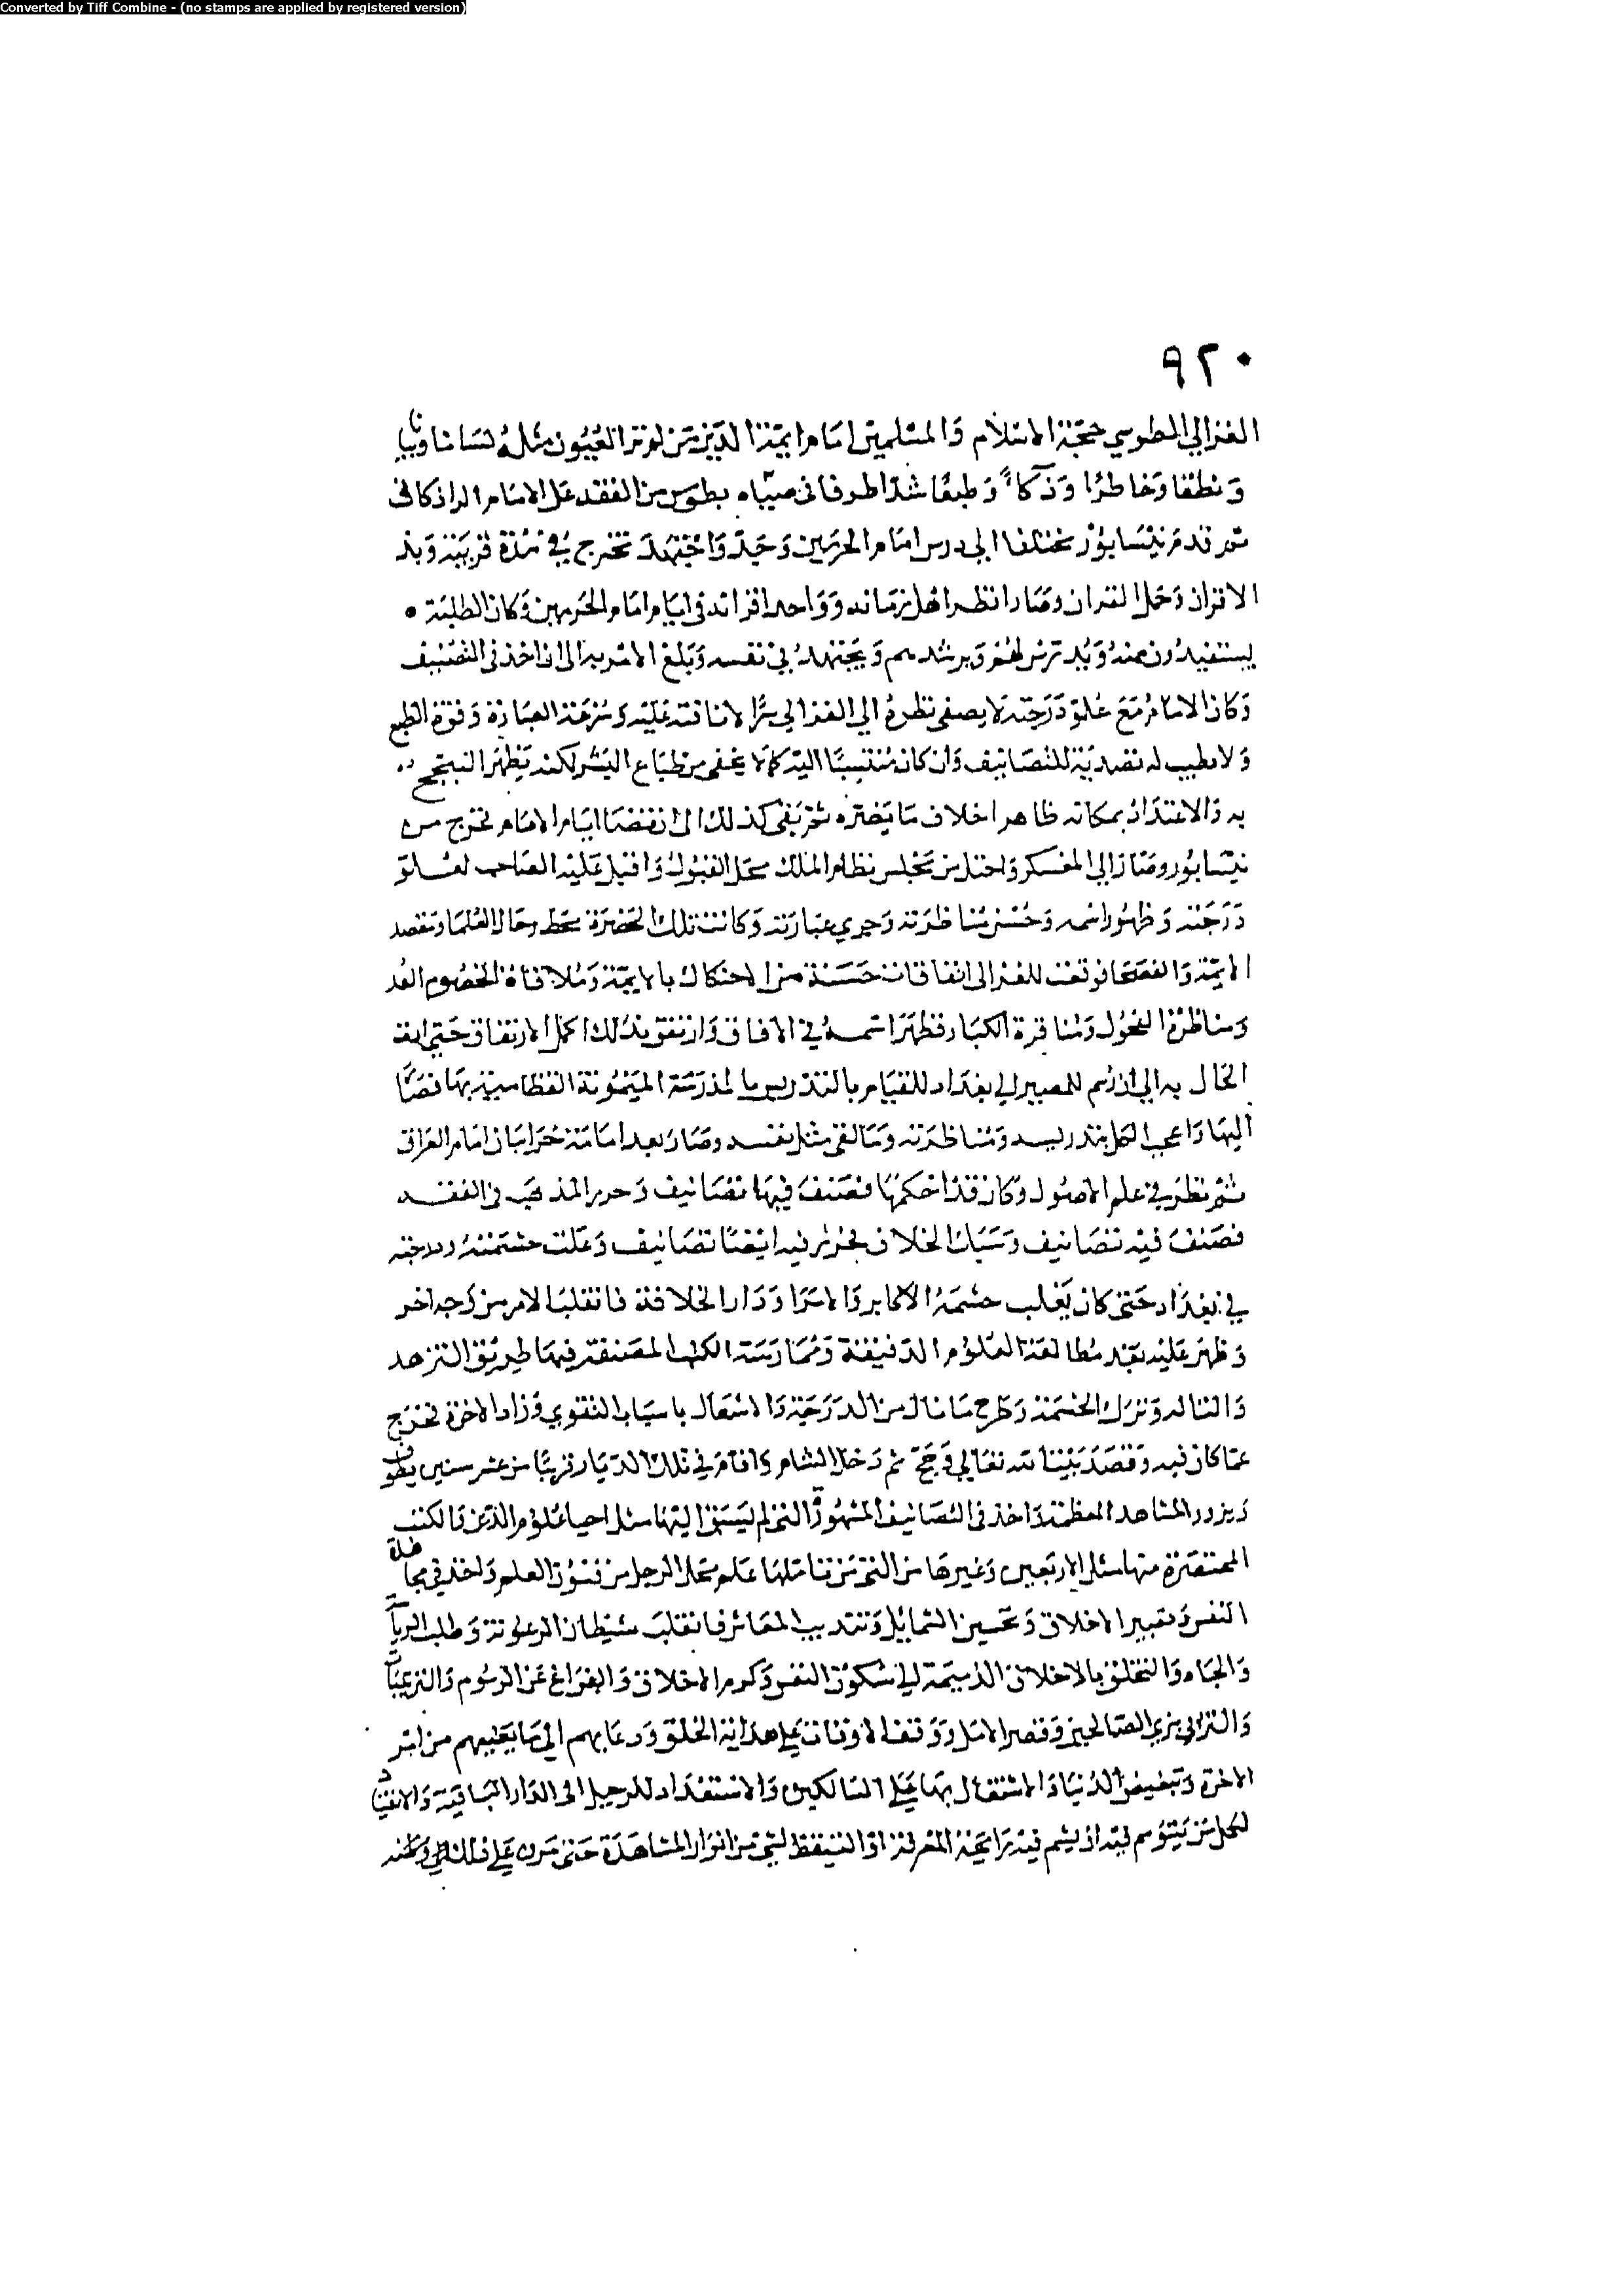 Converted by Tiff Combine - (no stamps are applied by registered version)
٩٢٠
الغزالي الطوسي حجة الاسلام والمسلمين امام ايمة الدين من لم تر العيون مثله لسانا وبيانا
ونطقا وخاطرا وذكاء وطبعا شدا طرفا في صباه بطوس من الفقه على الامام الراذكاني
ثم قدم نيسابور مختلفا الى درس امام الحرمين وجد واجتهد تخرج في مدة قريبة وبذ
الاقران وحمل القران وصار انظر اهل زمانه وواحد اقرانه في ايام امام الحرمين وكان الطلبة
يستفيدون منه ويدرس لهم ويرشدهم ويجتهد في نفسه وبلغ الامر به الى ان اخذ في التصنيف
وكان الامام مع علو درجته لا يصفي نظره الى الغزالي سرا لانافته عليه في سرعة العبارة وقوة الطبع
ولا يطيب له تصديه للتصانيف وان كان منتسبا اليه كما لا يخفى من طباع البشر لكنه يظهر التبجح
به والاعتداد بمكانه ظاهرا خلاف ما يضمره ثم بقي كذلك الى انقضا ايام الامام فخرج من
نيسابور وصار الى المعسكر واحتل من مجلس نظام الملك محل القبول واقبل عليه الصاحب لعلو
درجته وظهور اسمه وحسن مناظرته وجري عبارته وكانت تلك الحضرة محط رحال العلما ومقصد
الايمة والفصحا فوقعت للغزالي اتفاقات حسنة من الاحتكاك بالايمة وملاقاة الخصوم اللد
ومناظرة الفحول ومناقرة الكبار فظهر اسمه في الافاق وارتفق بذلك اكمل الارتفاق حتى ادت
الحال به الى ان رسم للمصير الى بغداد للقيام بالتدريس بالمدرسة الميمونة النظامية بها فصار
اليها واعجب الكل بتدريسه ومناظرته وما لقي مثل نفسه وصار بعد امامة خراسان امام العراق
ثم نظر في علم الاصول وكان قد احكمها فصنف فيها تصانيف وحرر المذهب في الفقه
فصنف فيه تصانيف وسبك الخلاف فحرر فيه ايضا تصانيف وعلت حشمته ودرجته
في بغداد حتى كان يغلب حشمة الاكابر والامرا ودار الخلافة فانقلب الامر من وجه اخر
وظهر عليه بعد مطالعة العلوم الدقيقة وممارسة الكتب المصنفة فيها طريق التزهد
والتاله وترك الحشمة وطرح ما نال من الدرجة والاشتغال باسباب التقوى وزاد الاخرة فخرج
عما كان فيه وقصد بيت الله تعالى وحج ثم دخل الشام واقام في تلك الديار قريبا من عشر سنين يطوف
ويزور المشاهد المعظمة واخذ في التصانيف المشهورة التي لم يسبق اليها مثل احيا علوم الدين والكتب
المختصرة منها مثل الاربعين وغيرها من التي من تاملها علم محل الرجل من فنون العلم واخذ في مجاهدة
النفس وتغيير الاخلاق وتحسين الشمايل وتهذيب المعاش فانقلب شيطان الرعونة وطلب الرياسة
والجاه والتخلق بالاخلاق الذميمة الى سكون النفس وكرم الاخلاق والفراغ عن الرسوم والترتيبات
والتزيي بزي الصالحين وقصر الامل ووقف الاوقات على هداية الخلق ودعايهم الى ما يعنيهم من امر
الاخرة وتبغيض الدنيا والاشتغال بها على السالكين والاستعداد للرحيل الى الدار الباقية والانقياد
لكل من يتوسم فيه او يشم فيه رايحة المعرفة او التيقظ لشي من انوار المشاهدة حتى مرن على ذلك